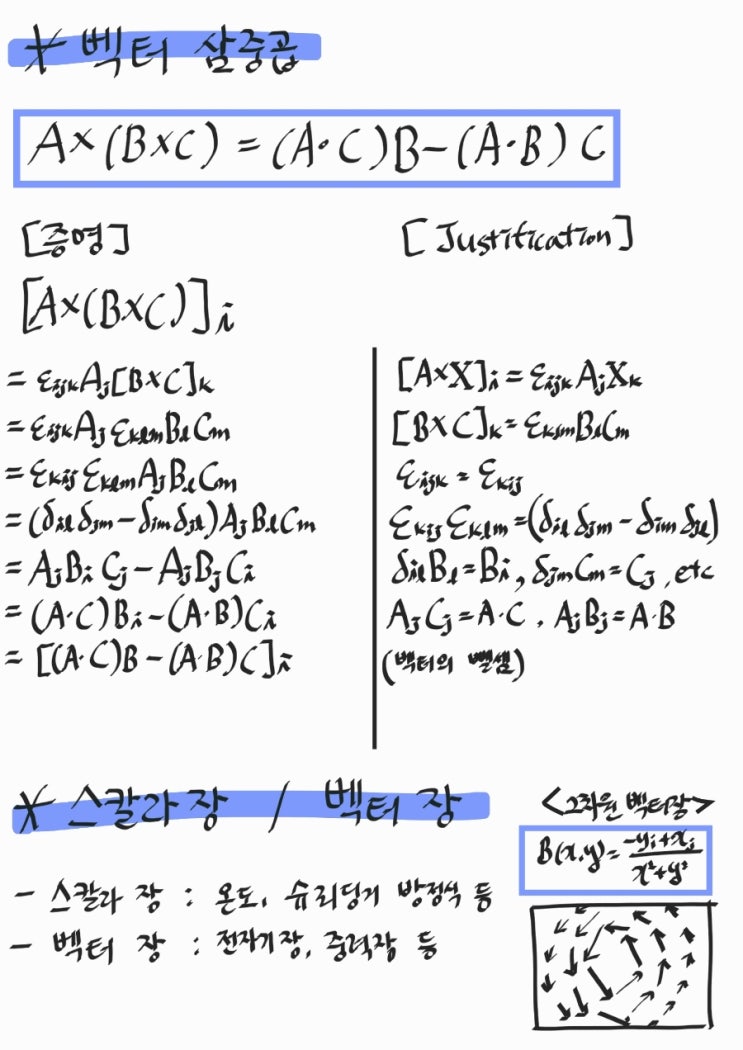 * 벡터 삼중곱
A×(B×C) = (A·C)B-(A·B)C
[증명]
[A×(B×C)]ᵢ
= εᵢⱼₖAⱼ[B×C]ₖ
= εᵢⱼₖAⱼ εₖₗₘBₗCₘ
= εₖᵢⱼ εₖₗₘAⱼBₗCₘ
= (δᵢₗ δⱼₘ - δᵢₘ δⱼₗ)AⱼBₗCₘ
= AⱼBᵢ Cⱼ - AⱼBⱼ Cᵢ
= (A·C)Bᵢ - (A·B)Cᵢ
= [(A·C)B - (A·B)C]ᵢ
[Justification]
[A×X]ᵢ = εᵢⱼₖ AⱼXₖ
[B×C]ₖ = εₖₗₘBₗCₘ
εᵢⱼₖ = εₖᵢⱼ
εₖᵢⱼ εₖₗₘ = (δᵢₗ δⱼₘ - δᵢₘ δⱼₗ)
δᵢₗBₗ = Bᵢ, δⱼₘCₘ = Cⱼ, etc
AⱼCⱼ = A·C, AⱼBⱼ = A·B
(벡터의 뺄셈)
* 스칼라 장 / 벡터 장
- 스칼라 장 : 온도, 슈리딩거 방정식 등
- 벡터 장 : 전자기장, 중력장 등
<2차원 벡터장>
B(x,y) = (-yi+xj)/(x²+y²)